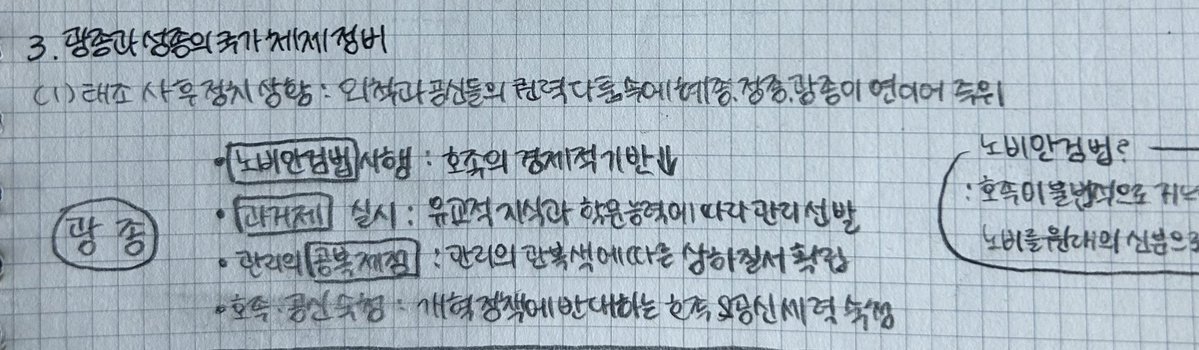 3. 광종과 성종의 국가 체제 정비
(1) 태조 사후 정치 상황 : 외척과 공신들의 권력 다툼 속에 혜종, 정종, 광종이 연이어 즉위
광종
• 노비안검법 시행 : 호족의 경제적 기반↓
• 과거제 실시 : 유교적 지식과 학문 능력에 따라 관리 선발
• 관리의 공복 제정 : 관리의 관복색에 따른 상하 질서 확립
• 호족·공신 숙청 : 개혁 정책에 반대하는 호족&공신 세력 숙청
노비안검법?
: 호족이 불법적으로
노비를 원래의 신분으로